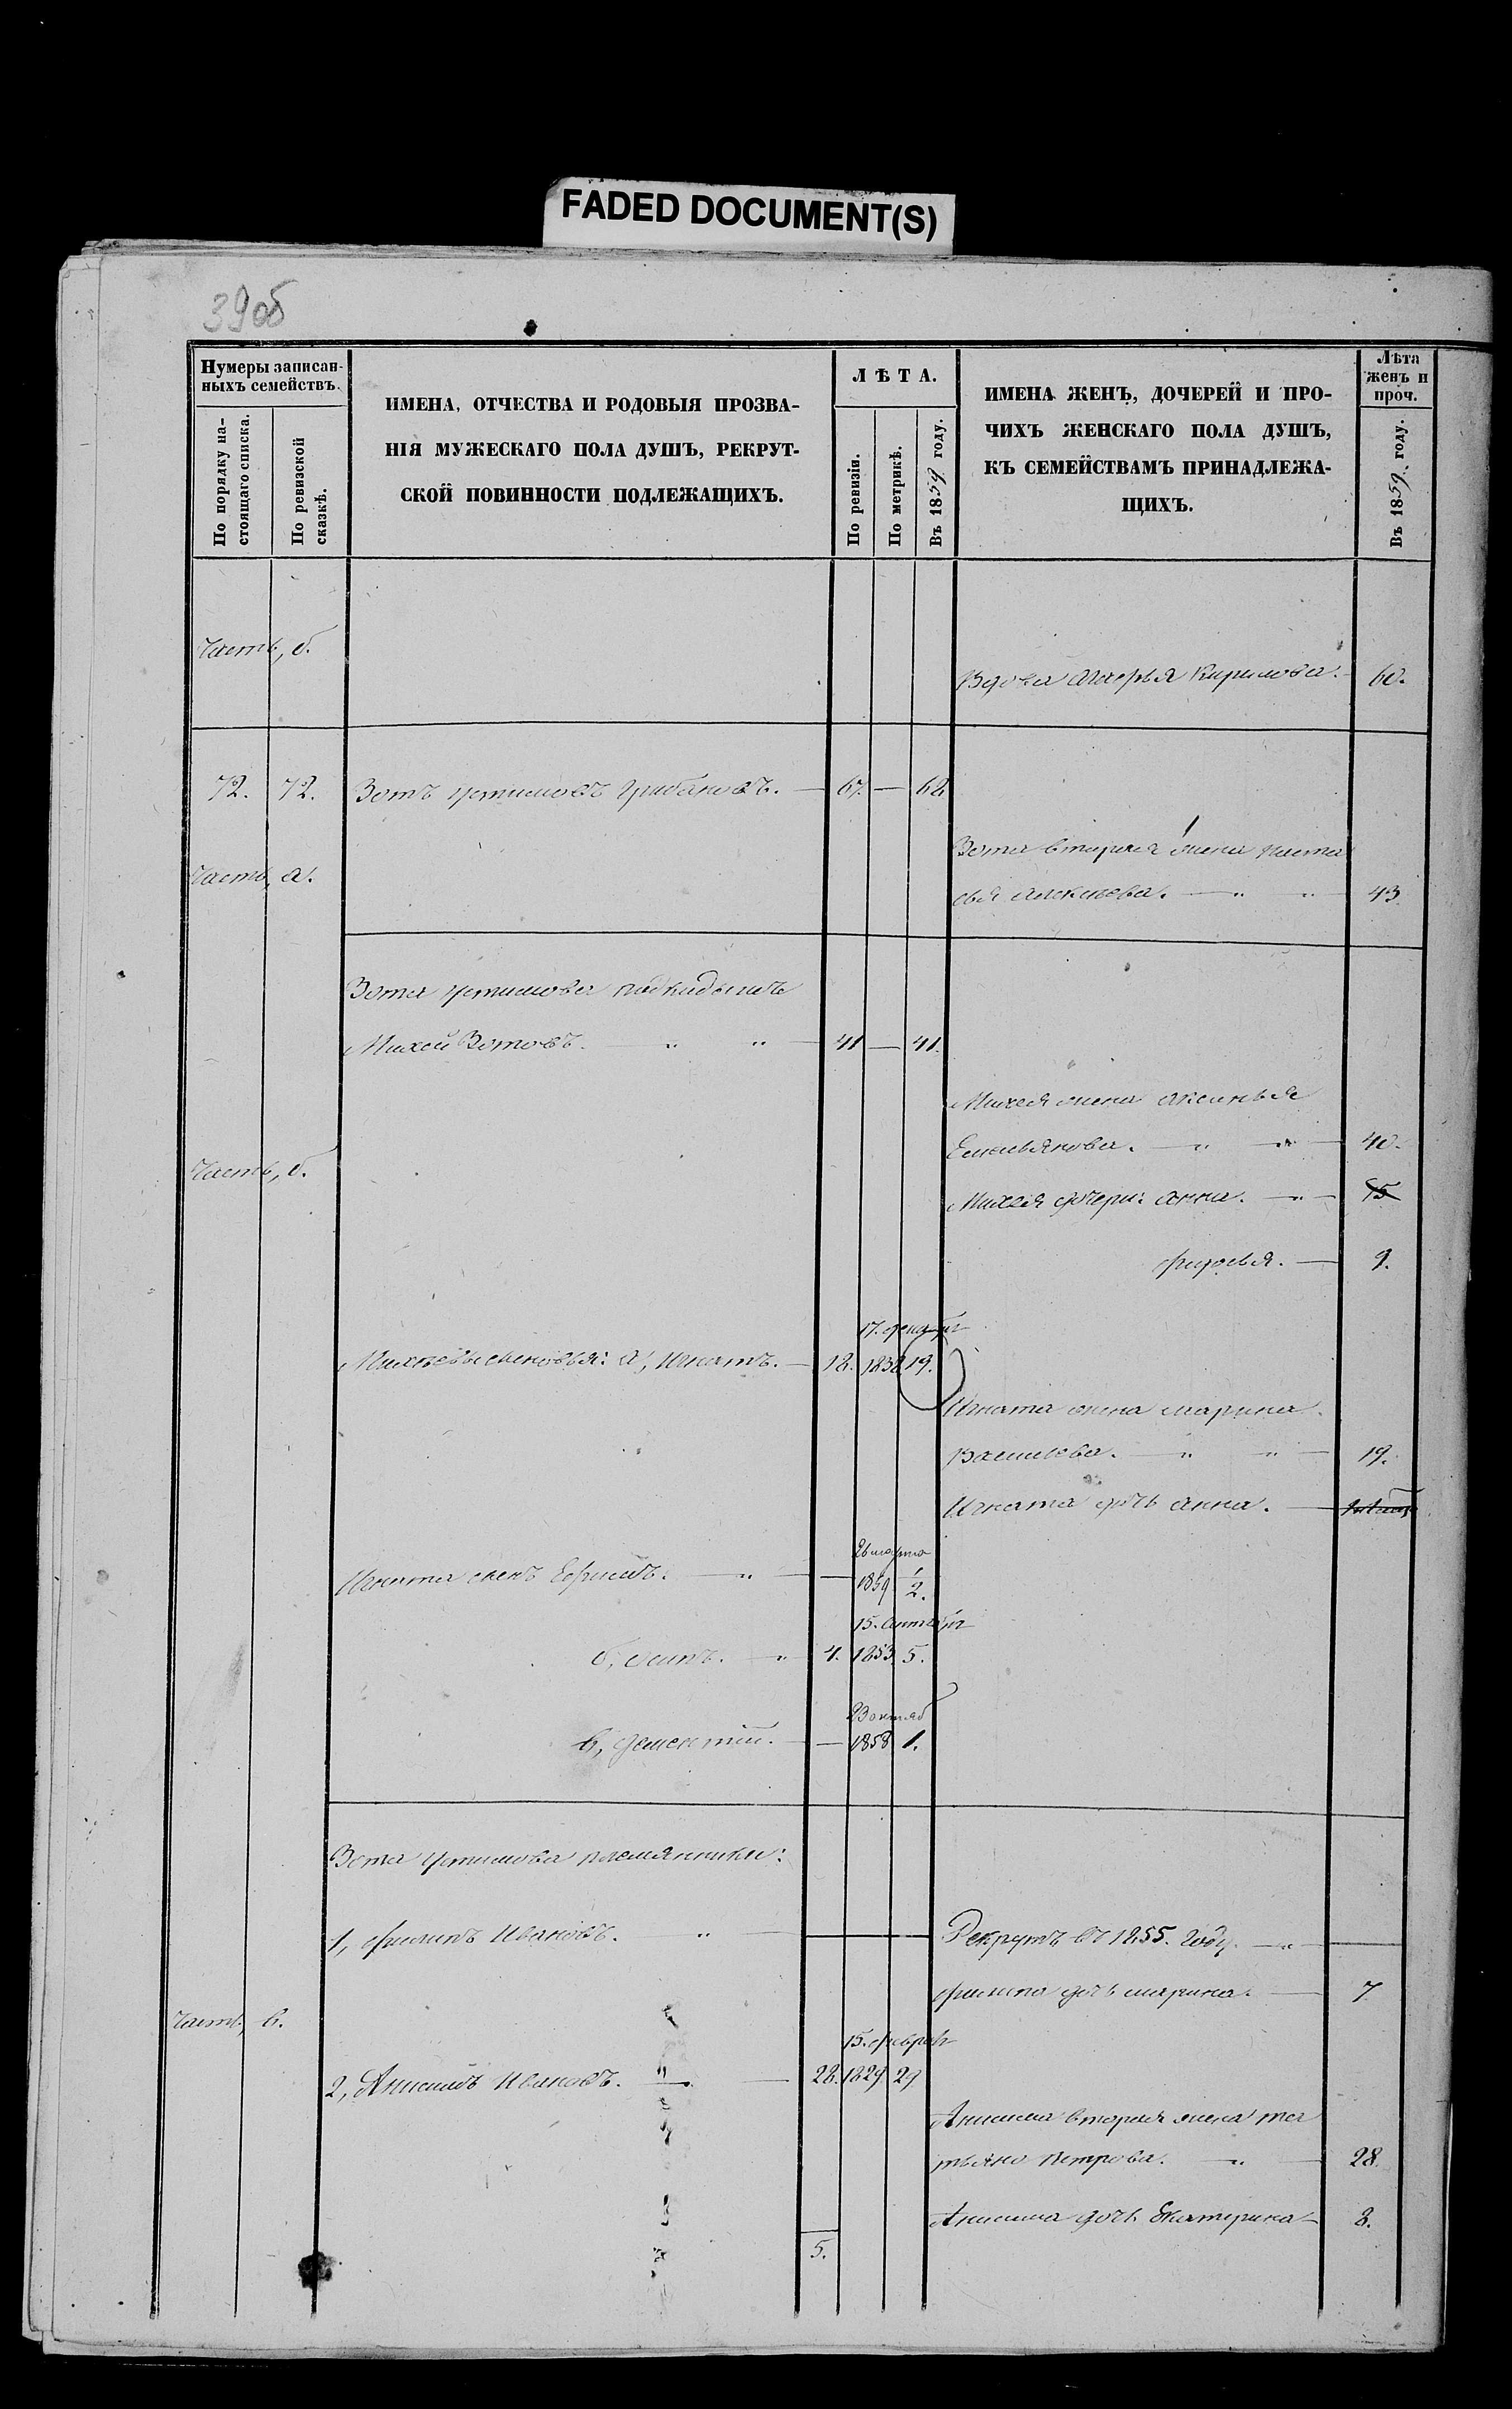 FADED DOCUMENT(S)
39об
Нумеры записан-
ныхъ семействъ.
По порядку на-
стоящаго списка.
По ревизской
сказкѣ.
ИМЕНА, ОТЧЕСТВА И РОДОВЫЯ ПРОЗВА-
НІЯ МУЖЕСКАГО ПОЛА ДУШЪ, РЕКРУТ-
СКОЙ ПОВИННОСТИ ПОДЛЕЖАЩИХЪ.
ЛѢТА.
По ревизіи.
По метрикѣ.
Въ 1859 году.
ИМЕНА ЖЕНЪ, ДОЧЕРЕЙ И ПРО-
ЧИХЪ ЖЕНСКАГО ПОЛА ДУШЪ,
КЪ СЕМЕЙСТВАМЪ ПРИНАДЛЕЖА-
ЩИХЪ.
Лѣта
женъ и
проч.
Въ 1859. году.
Часть, б.
Вдова Кирилова. 60.
72. 72. Зотъ Устимовъ Грибановъ. — 67. — 68
Зота вторая жена Наста
Часть, а.
сья Алексѣева. — " " 43.
Зота Устимова подкидышъ
Михей Зотовъ. — " " — 41 — 41.
Михея жена Аксинья
Емельянова. — " " — 40.
Часть, б.
Михея дочери: Анна. — " — 15
Федосья. — 9.
17. декабр
Михѣевы сыновья: а, Игнатъ. — 18. 1838 19.
Игната жена Марина
Васильева. — " " — 19.
Игната дочь Анна. —
26 марта
Игната сынъ Ефимъ. — " — — 1859 1/2.
15. сентября
б, Осипъ. — " 4. 1853. 5.
23 октяб
в, Дементій. — — 1858 1.
Зота Устимова племянники:
1, Филипъ Ивановъ. " — Рекрутъ въ 1855. году. — " —
Филипа дочь Марина. — 7
Часть, в.
15. феврал
2, Анисимъ Ивановъ. " — 28. 1829 29
Анисима вторая жена Та
тьяна Петрова. — " — 28.
Анисима дочь Екатерина — 8.
5.